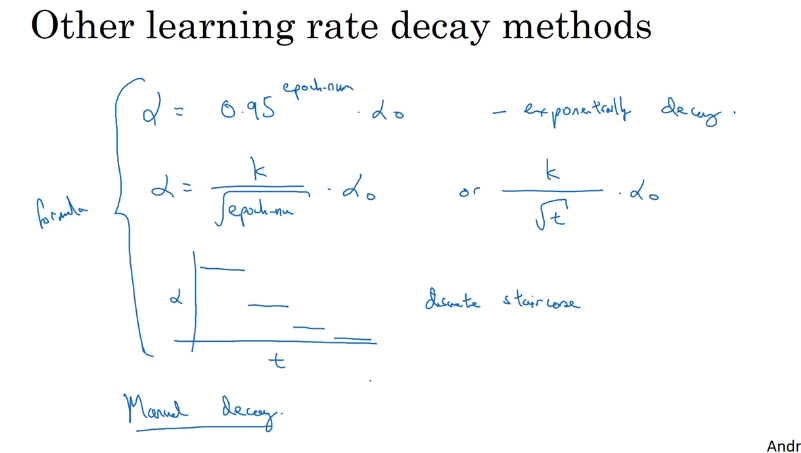 Other learning rate decay methods
α = 0.95^epoch-num · α₀ – exponentially decay.
formula
α = k / √epoch-num · α₀ or k / √t · α₀
α
discrete staircase
t
Manual decay.
Andr